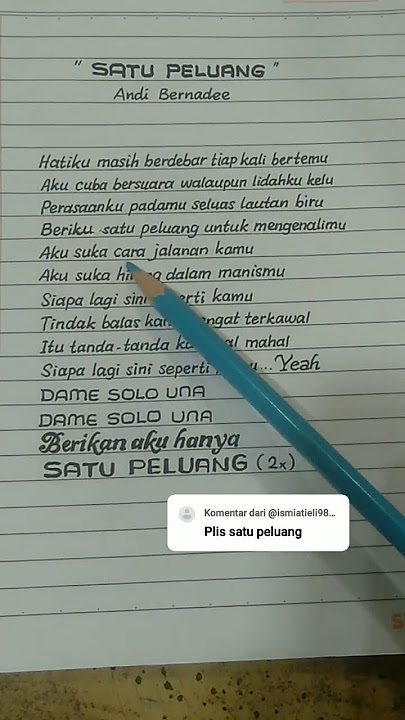 " SATU PELUANG "
Andi Bernadee
Hatiku masih berdebar tiap kali bertemu
Aku cuba bersuara walaupun lidahku kelu
Perasaanku padamu seluas lautan biru
Beriku satu peluang untuk mengenalimu
Aku suka cara jalanan kamu
Aku suka dalam manismu
Siapa lagi kamu
Tindak balas terkawal
Itu tanda-tanda mahal
Siapa lagi sini seperti ... Yeah
DAME SOLO UNA
DAME SOLO UNA
Berikan aku hanya
SATU PELUANG (2x)
Komentar dari @ismiatieli98...
Plis satu peluang